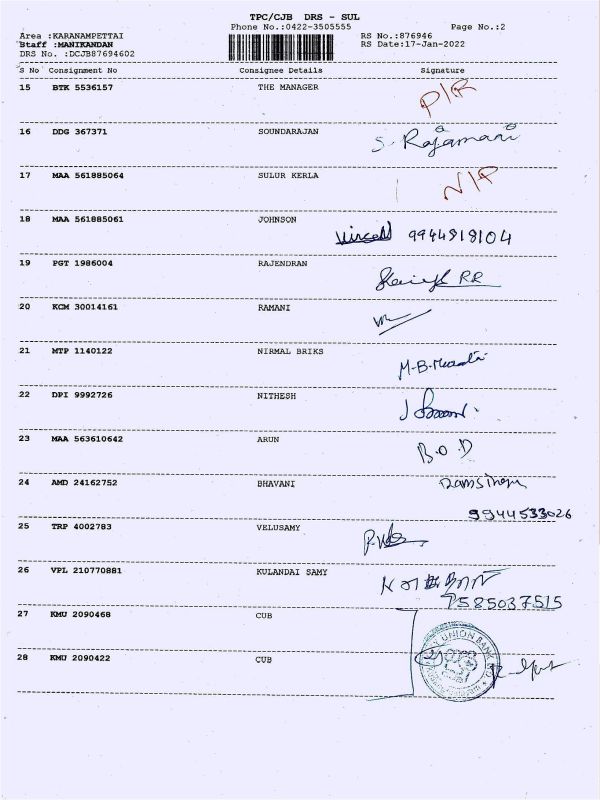 TPC/CJB DRS - SUL
Phone No.:0422-3505555 Page No.:2
Area :KARANAMPETTAI RS No.:876946
Staff :MANIKANDAN RS Date:17-Jan-2022
DRS No. :DCJB87694602
S No Consignment No Consignee Details Signature
15 BTK 5536157 THE MANAGER P/R
16 DDG 367371 SOUNDARAJAN S. Rajamani
17 MAA 561885064 SULUR KERLA N/P
18 MAA 561885061 JOHNSON 9944818104
19 PGT 1986004 RAJENDRAN RR
20 KCM 30014161 RAMANI
21 MTP 1140122 NIRMAL BRIKS M-B-
22 DPI 9992726 NITHESH
23 MAA 563610642 ARUN B.O.D
24 AMD 24162752 BHAVANI Ramsingh
9944533026
25 TRP 4002783 VELUSAMY
26 VPL 210770881 KULANDAI SAMY
7585037515
27 KMU 2090468 CUB
UNION BANK
28 KMU 2090422 CUB